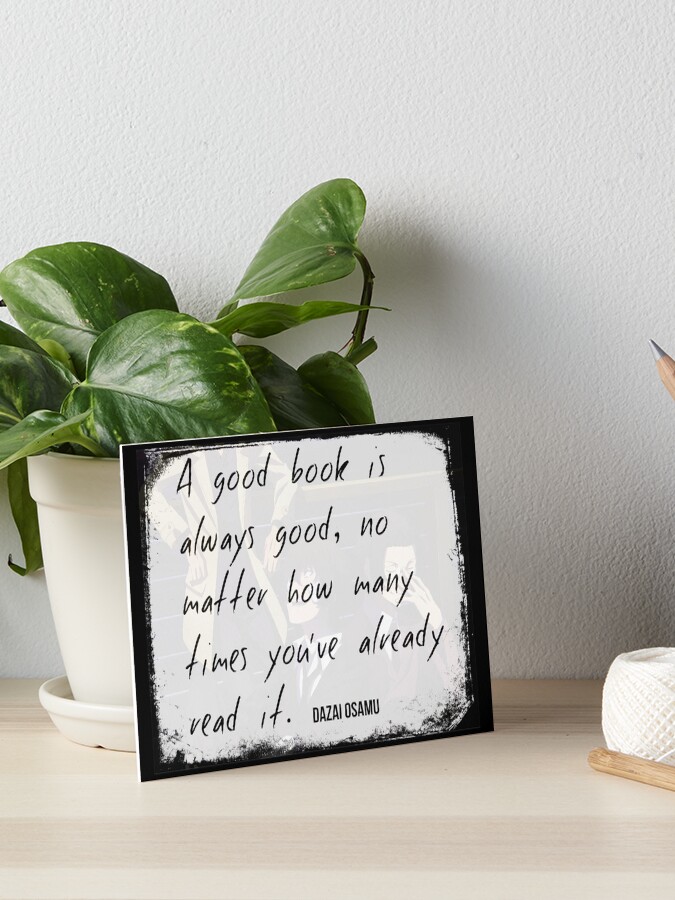 A good book is
always good, no
matter how many
times you've already
read it. DAZAI OSAMU